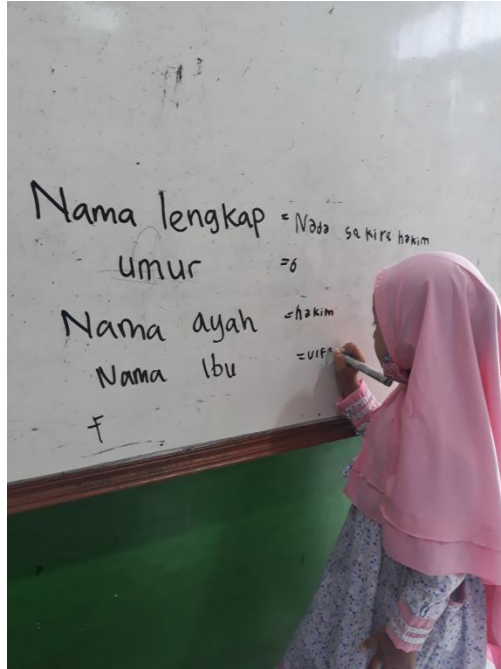 Nama lengkap = Nada sakira hakim
umur =6
Nama ayah =hakim
Nama Ibu =
F